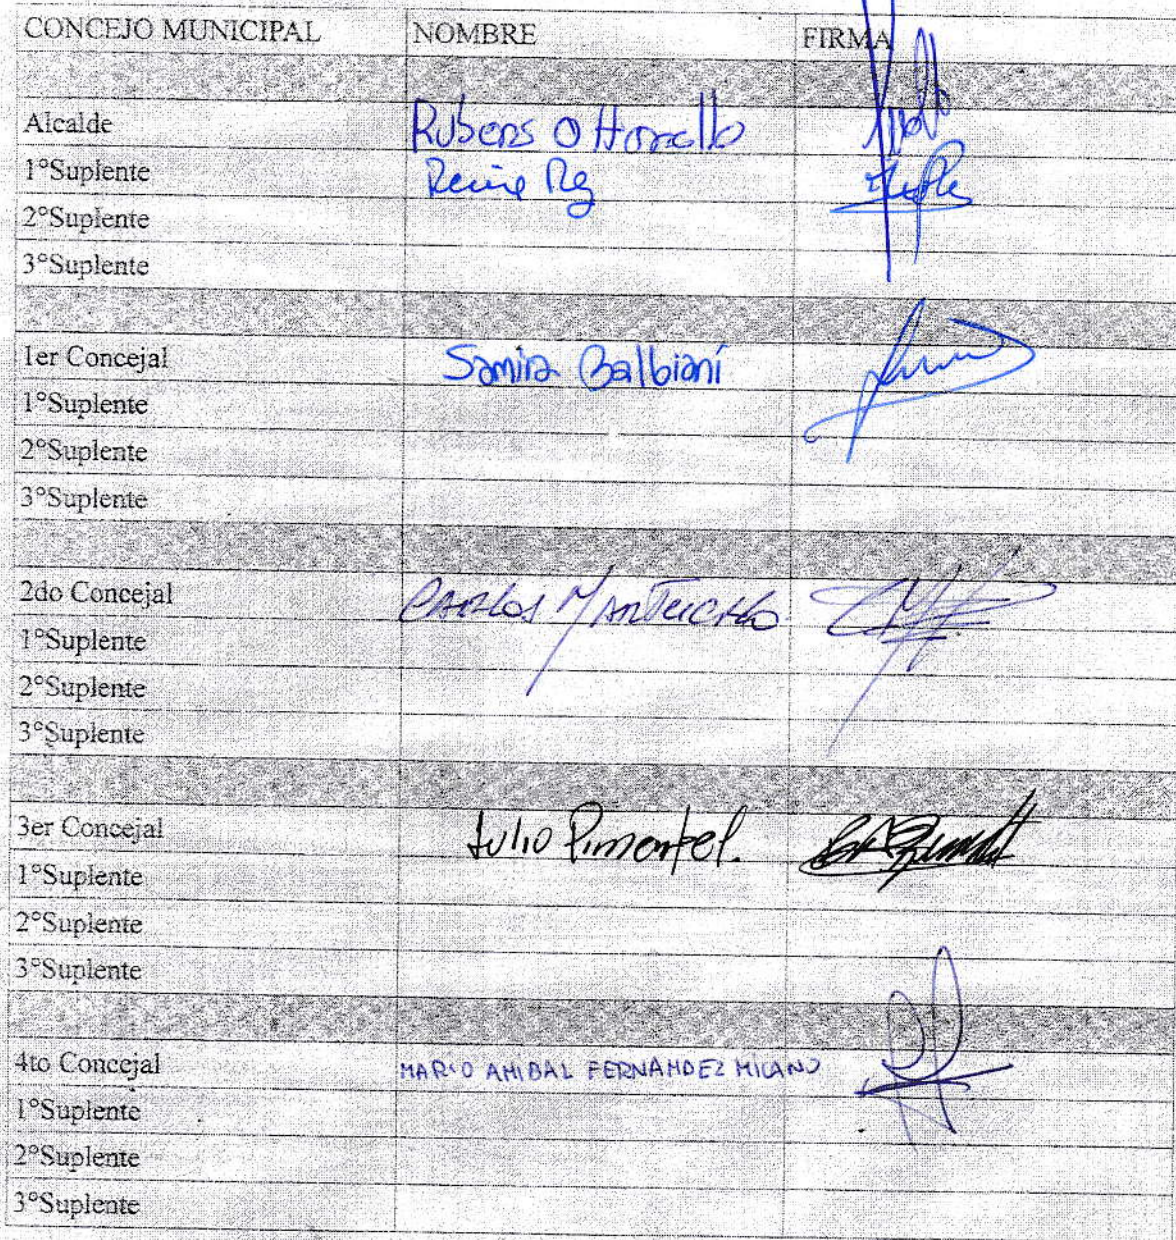 CONCEJO MUNICIPAL NOMBRE FIRMA
Alcalde Rubens Ottonello
1°Suplente
2°Suplente
3°Suplente
1er Concejal Samira Balbiani
1°Suplente
2°Suplente
3°Suplente
2do Concejal CARLOS MANTUCHO
1°Suplente
2°Suplente
3°Suplente
3er Concejal Julio Pimentel.
1°Suplente
2°Suplente
3°Suplente
4to Concejal MARIO ANIBAL FERNANDEZ MILANO
1°Suplente
2°Suplente
3°Suplente